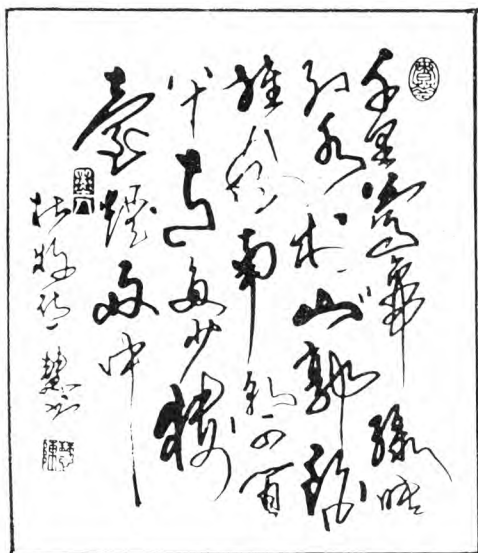 千里鶯啼綠映
紅水村山郭酒
旗風南朝四百
八十寺多少樓
臺煙雨中
杜牧詩